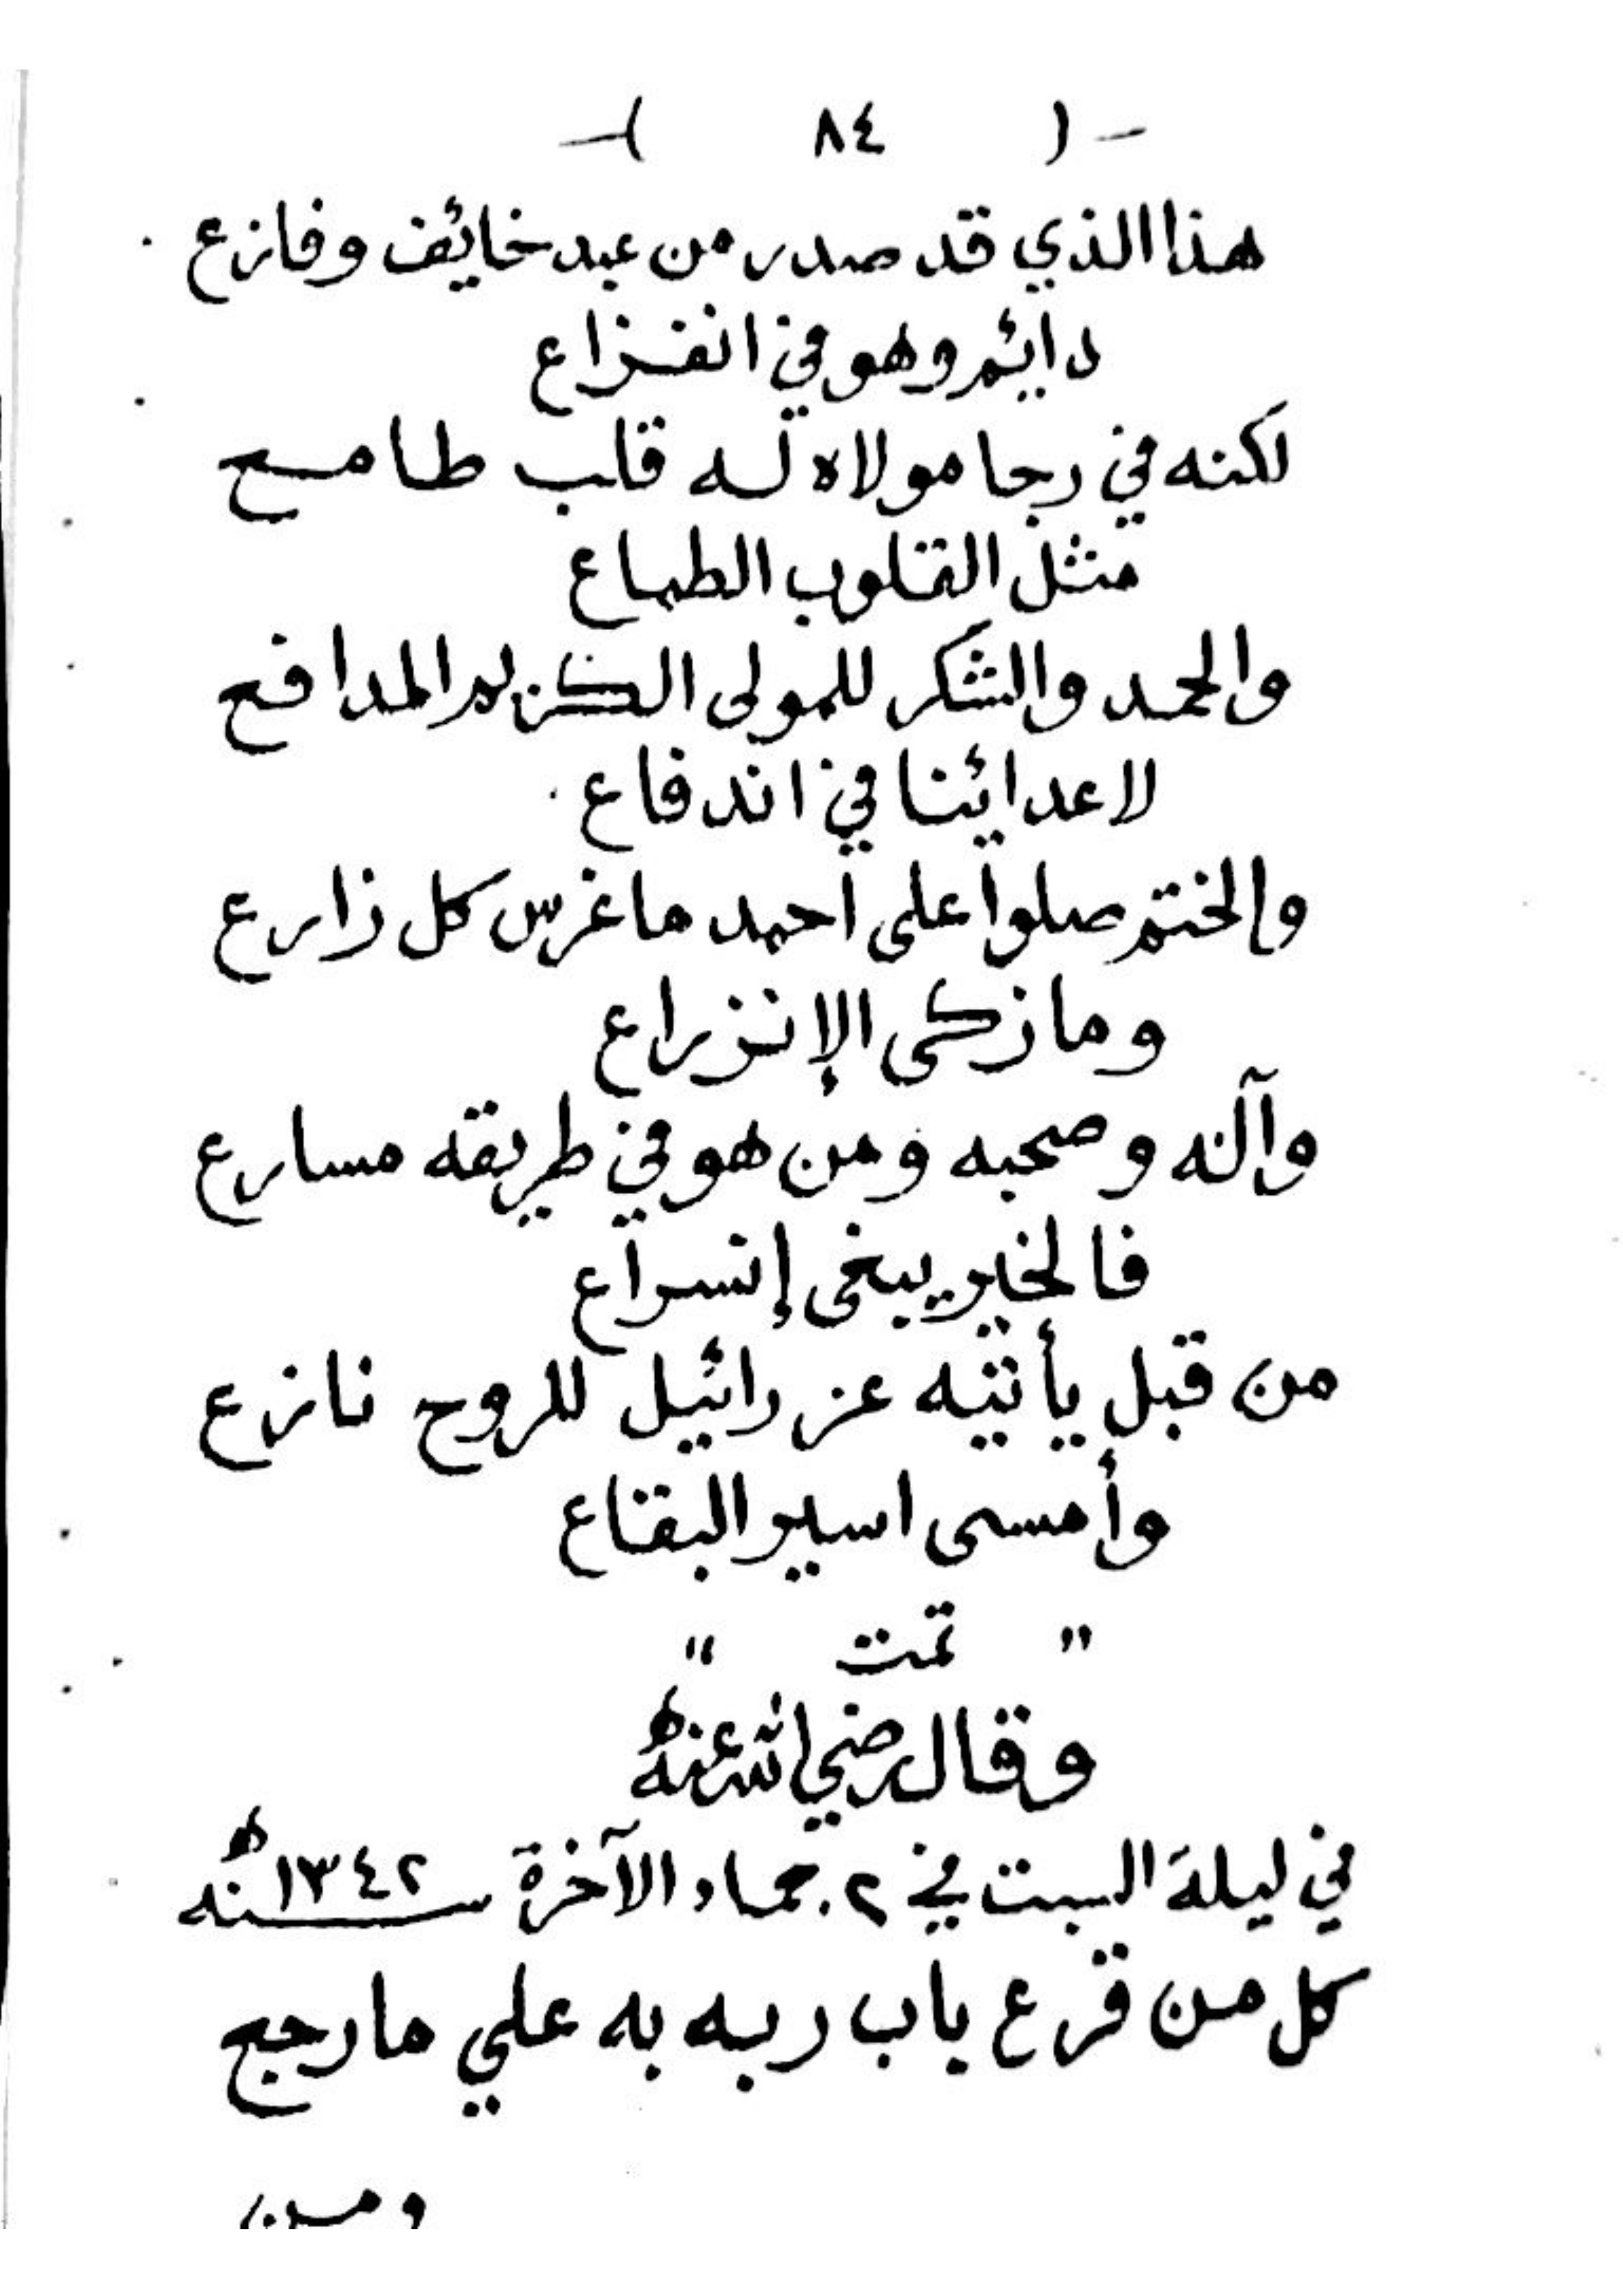 -( ٨٤ )-
هذا الذي قد صدر من عبد خائف وفازع
دايم وهو في انفزاع
لكنه في رجا مولاه له قلب طامع
مثل القلوب الطماع
والحمد والشكر للمولى الكريم المدافع
لاعدائنا في اندفاع
والختم صلوا على احمد ما غرس كل زارع
وما زكى الإنزراع
وآله وصحبه ومن هو في طريقه مسارع
فالخير يبغى إنسراع
من قبل يأتيه عزرائيل للروح نازع
وأمسى اسير البقاع
" تمت "
وقال رضي الله عنه
في ليلة السبت في ٢٠ جماد الآخرة سنة ١٣٤٢ ه
كل من قرع باب ربه به علي ما رجع
ومن